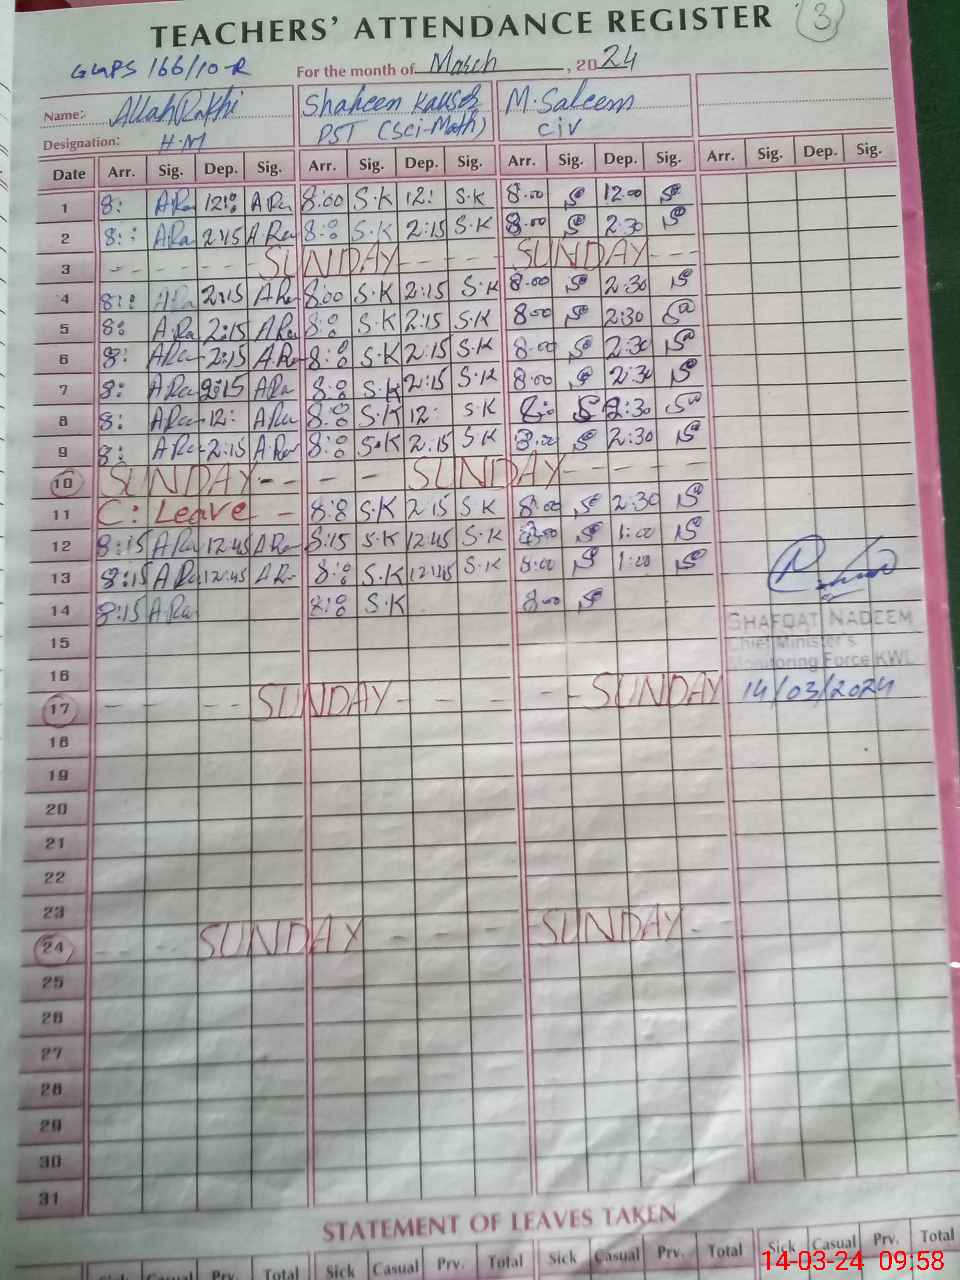 TEACHERS' ATTENDANCE REGISTER 3
GGPS 166/10-R For the month of March, 2024
Name: Allah Rakhi Shaheen Kausar M. Saleem
Designation: H.M PST (Sci-Math) Civ
Date Arr. Sig. Dep. Sig. Arr. Sig. Dep. Sig. Arr. Sig. Dep. Sig. Arr. Sig. Dep. Sig.
1 8: A Ra 12:00 A Ra 8:00 S.K 12: S.K 8:00 12:00
2 8: A Ra 2:15 A Ra 8:00 S.K 2:15 S.K 8:00 2:30
3 SUNDAY SUNDAY
4 8: A Ra 2:15 A Ra 8:00 S.K 2:15 S.K 8:00 2:30
5 8: A Ra 2:15 A Ra 8:00 S.K 2:15 S.K 8:00 2:30
6 8: A Ra 2:15 A Ra 8:00 S.K 2:15 S.K 8:00 2:30
7 8: A Ra 2:15 A Ra 8:00 S.K 2:15 S.K 8:00 2:30
8 8: A Ra 12: A Ra 8:00 S.K 12: S.K 8:00 2:30
9 8: A Ra 2:15 A Ra 8:00 S.K 2:15 S.K 8:00 2:30
10 SUNDAY SUNDAY
11 C: Leave - 8:00 S.K 2:15 S.K 8:00 2:30
12 8:15 A Ra 12:45 A Ra 8:15 S.K 12:45 S.K 8:00 1:00
13 8:15 A Ra 12:45 A Ra 8:00 S.K 12:45 S.K 8:00 1:00
14 8:15 A Ra 8:00 S.K 8:00
SHAFQAT NADEEM
15
Chief Minister's
Monitoring Force KWL
16
17 SUNDAY SUNDAY 14/03/2024
18
19
20
21
22
23
24 SUNDAY SUNDAY
25
26
27
28
29
30
31
STATEMENT OF LEAVES TAKEN
Sick Casual Prv. Total Sick Casual Prv. Total Sick Casual Prv. Total Sick Casual Prv. Total
14-03-24 09:58